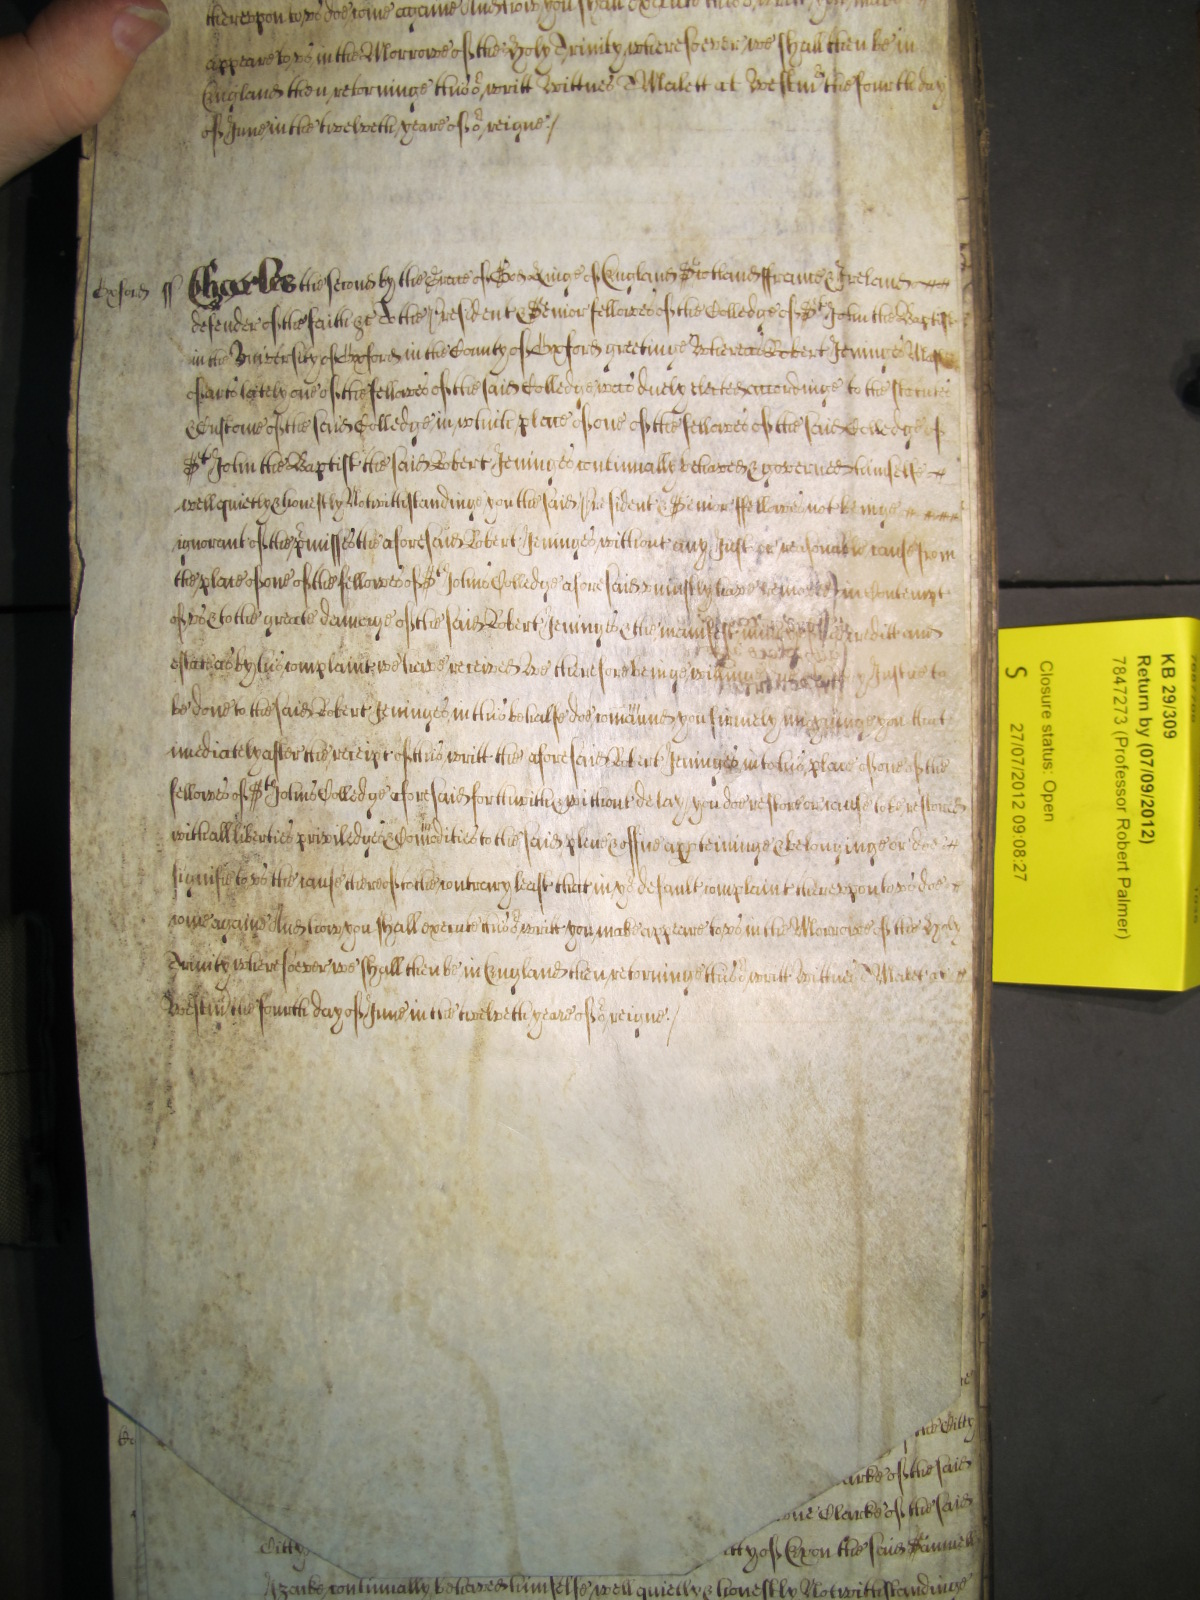 thereupon to us doe come againe And how you shall execute this or writt you make
appeare to us in the Morrowe of the Holy Trinity wheresoever we shall then be in
England then retorninge this or writt Wittnes T Malett at Westmr the fourth day
of June in the twelveth yeare of or reigne /
Oxford ss Charles the second by the Grace of God Kinge of England Scotland ffrance & Ireland
defender of the faith &c To the President & Senior fellowes of the Colledge of St John the Baptist
in the University of Oxford in the County of Oxford greetinge Whereas Robert Jeninges
of arts lately one of the fellowes of the said Colledge was duely elected accordinge to the statutes
& Custome of the said Colledge in which place of one of the fellowes of the said Colledge of
St John the Baptist the said Robert Jeninges continually behaved & governed himselfe
well quietly & honestly Notwithstandinge you the said President & Senior ffellowes not beinge
ignorant of the pmisses the aforesaid Robert Jeninges without any just or reasonable cause from
the place of one of the fellowes of St Johns Colledge aforesaid uniustly have removed in Contempt
of us & to the greate damage of the said Robert Jeninges & the manifest creditt and
estate as by his complaint we have received We therefore beinge willinge Justice to
be done to the said Robert Jeninges in this behalfe doe comaund you firmely iniyninge you that
imediately after the receipt of this writt the aforesaid Robert Jeninges into his place of one of the
fellowes of St Johns Colledge aforesaid forthwith & without delay you doe restore or cause to be restored
with all liberties priviledges & Comodities to the said place & office apperteininge & belonginge or doe
signifie to us the cause thereof to the contrary least that in yor default complaint thereupon to us doe
come againe And how you shall execute this or writt you make appeare to us in the Morrowe of the Holy
Trinity wheresoever we shall then be in England then retorninge this or writt Wittnes T Malet at
Westmr the fourth day of June in the twelveth yeare of or reigne /
Citty
arke of the said
one Clarke of the said
Citty
tty of Exon the said Samuell
Izacke continually behaved himselfe well quietly & honestly Notwithstandinge
KB 29/309
Return by (07/09/2012)
7847273 (Professor Robert Palmer)
Closure status: Open
S 27/07/2012 09:08:27